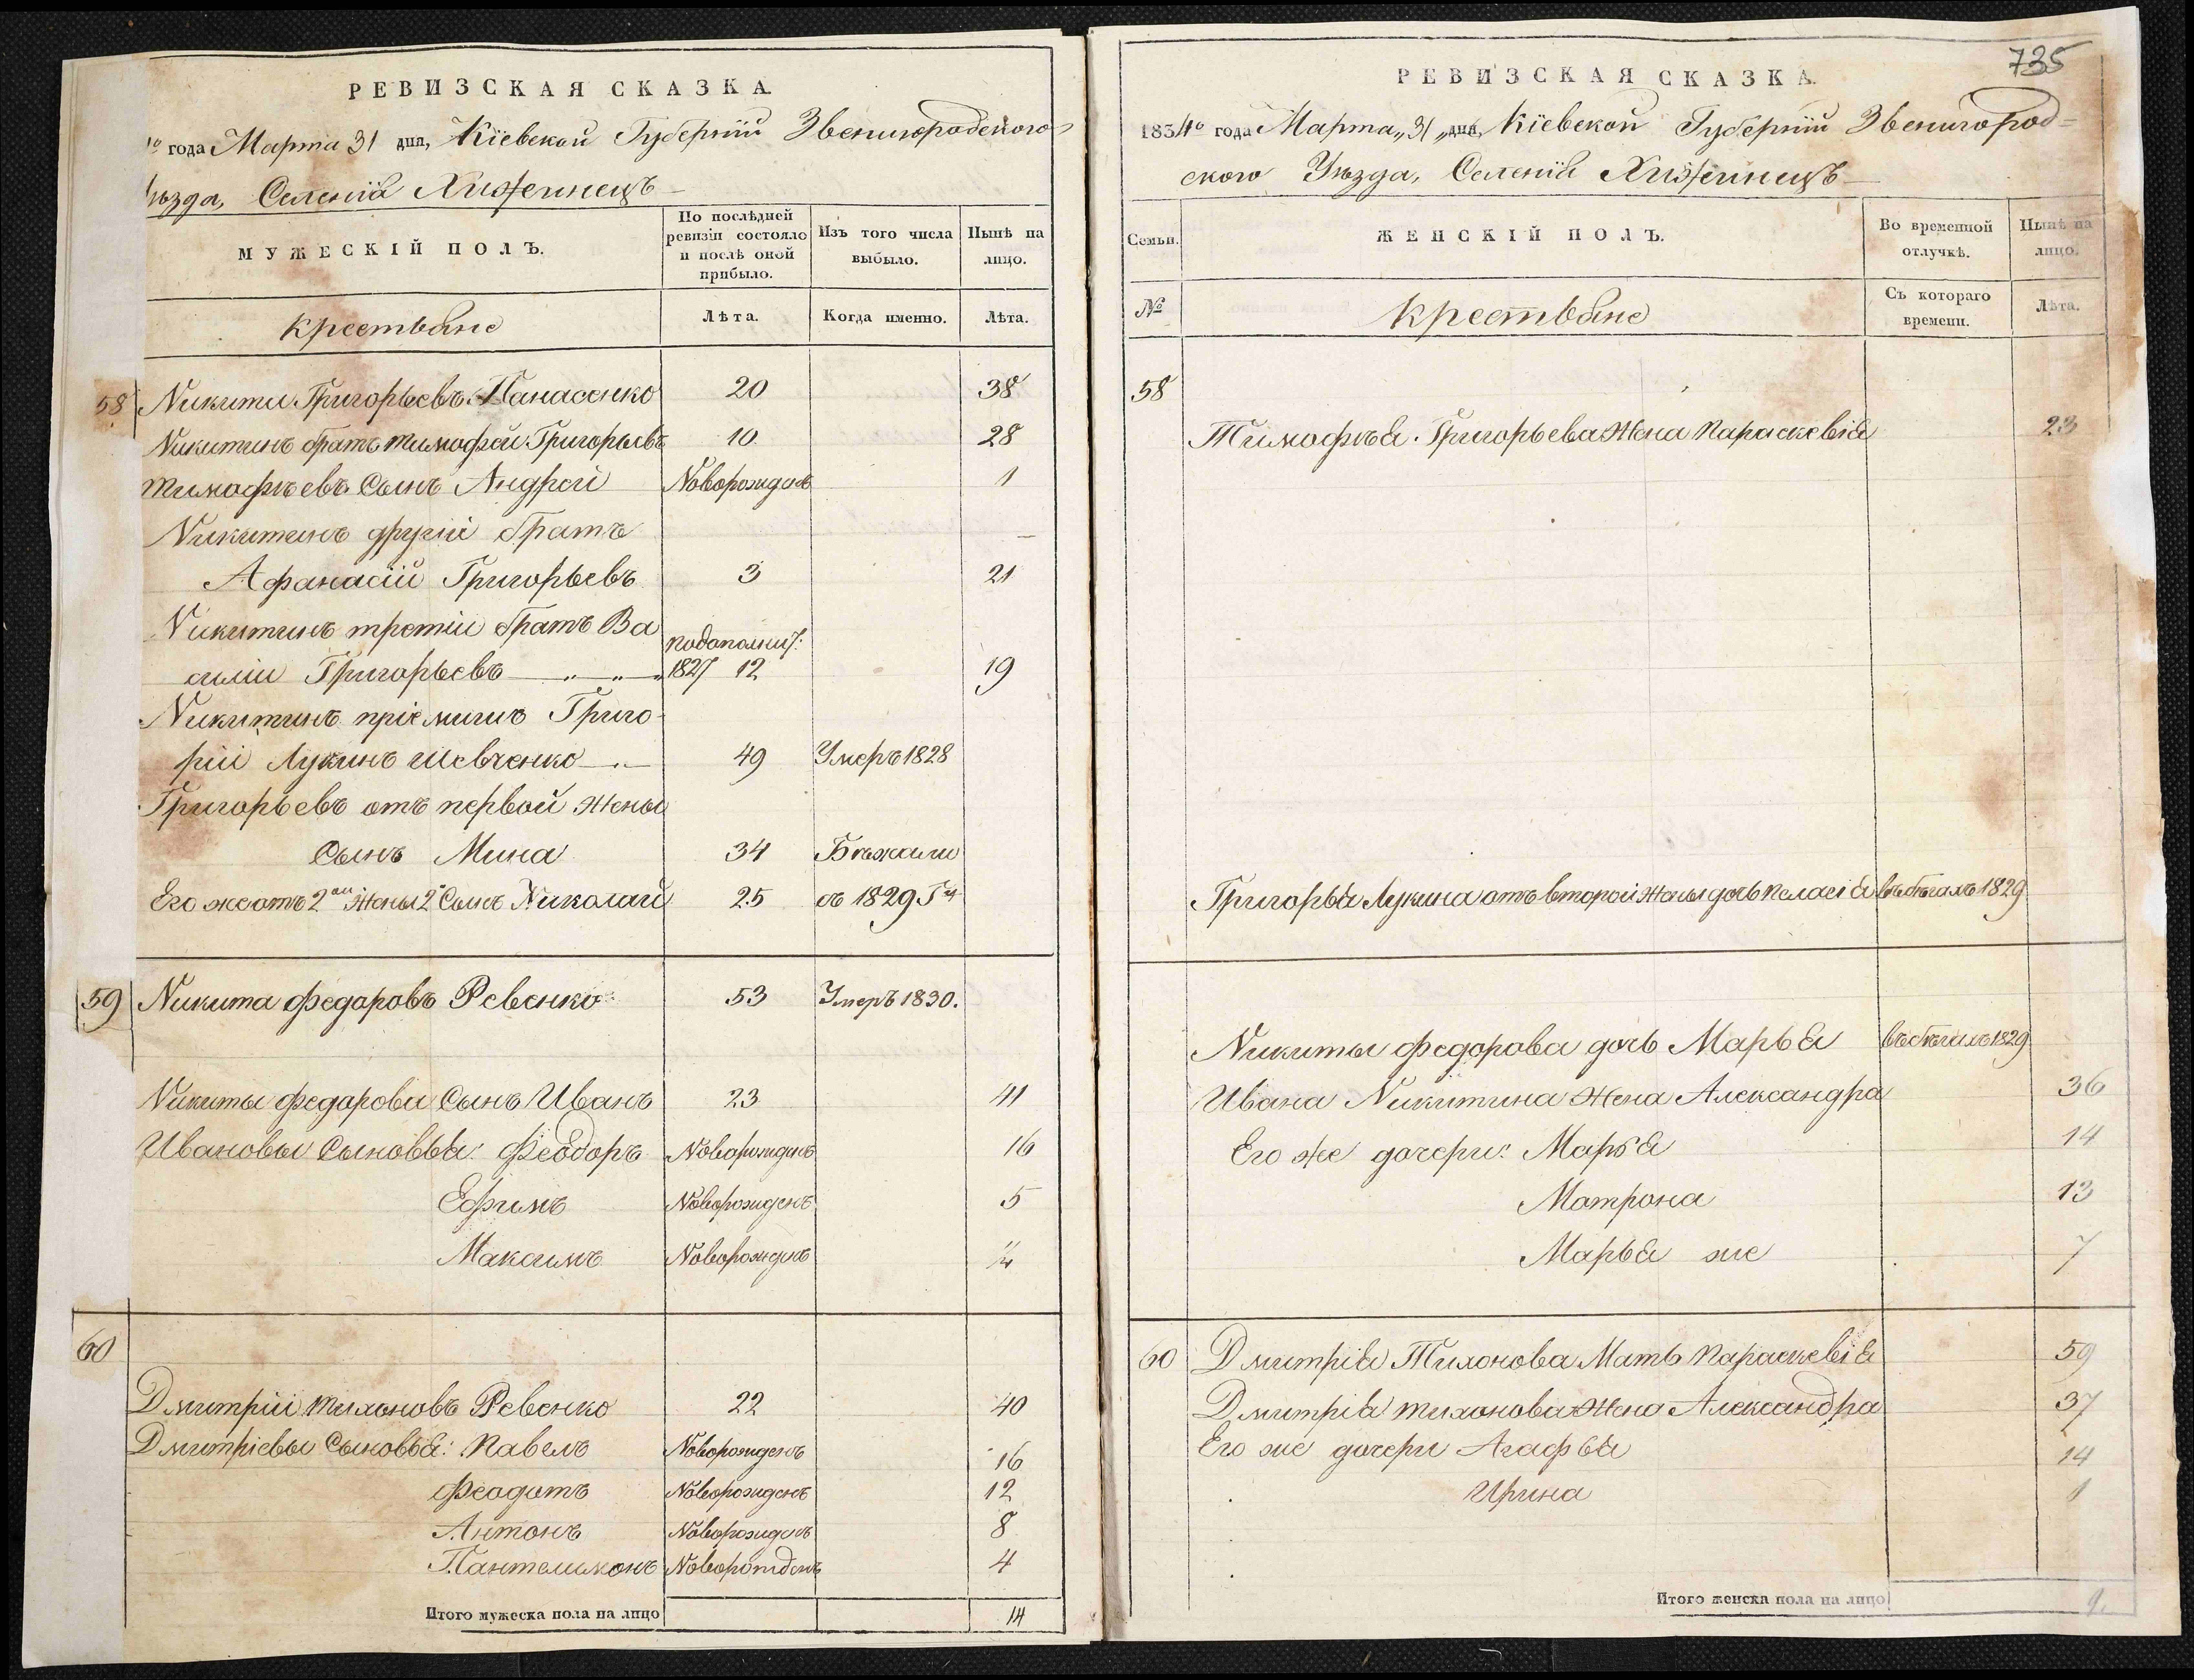 РЕВИЗСКАЯ СКАЗКА.
го года Марта 31 дня, Кіевской Губерніи Звенигородского
Уѣзда, Селенія Хижинецъ
МУЖЕСКІЙ ПОЛЪ.
По послѣдней ревизіи состояло и послѣ оной прибыло.
Изъ того числа выбыло.
Нынѣ на лицо.
крестьяне
Лѣта.
Когда именно.
Лѣта.
58 Никита Григорьевъ Панасенко 20 38
Никитинъ братъ тимофей Григорьевъ 10 28
тимофѣевъ Сынъ Андрей Новорожденъ 1
Никитинъ другій братъ
Афанасій Григорьевъ 3 21
Никитинъ третій братъ Ва
силій Григорьевъ 1827 12 19
Никитинъ пріемишъ Григо-
рій Лукинъ Шевченко 49 Умеръ 1828
Григорьевъ отъ первой жены
Сынъ Мина 34 Бѣжали
Его же отъ 2ой жены 2й Сынъ Николай 25 съ 1829 Гд
59 Никита федоровъ Ревенко 53 Умеръ 1830.
Никиты федорова Сынъ Иванъ 23 41
Ивановы Сыновья: Феодоръ Новорожденъ 16
Ефимъ Новорожденъ 5
Максимъ Новорожденъ 1/4
60
Дмитрій тихоновъ Ревенко 22 40
Дмитріевы Сыновья: Павелъ Новорожденъ 16
Феодотъ Новорожденъ 12
Антонъ Новорожденъ 8
Пантелимонъ Новорожденъ 4
Итого мужеска пола на лицо 14
735
РЕВИЗСКАЯ СКАЗКА.
1834го года Марта „31„ дня, Кіевской Губерніи Звенигород=
ского Уѣзда, Селенія Хижинецъ
Семьи.
ЖЕНСКІЙ ПОЛЪ.
Во временной отлучкѣ.
Нынѣ на лицо.
№
крестьяне
Съ котораго времени.
Лѣта.
58
Тимофѣя Григорьева жена Параскевія 23
Григорья Лукина отъ второй жены дочь Пелагія въ бѣгахъ 1829
Никиты федорова дочь Марья въ бѣгахъ 1829
Ивана Никитина жена Александра 36
Его же дочери: Марья 14
Матрона 13
Марья же 7
60 Дмитрія Тихонова Мать Параскевія 59
Дмитрія тихонова жена Александра 37
Его же дочери Агафья 14
Ирина 1
Итого женска пола на лицо 9.